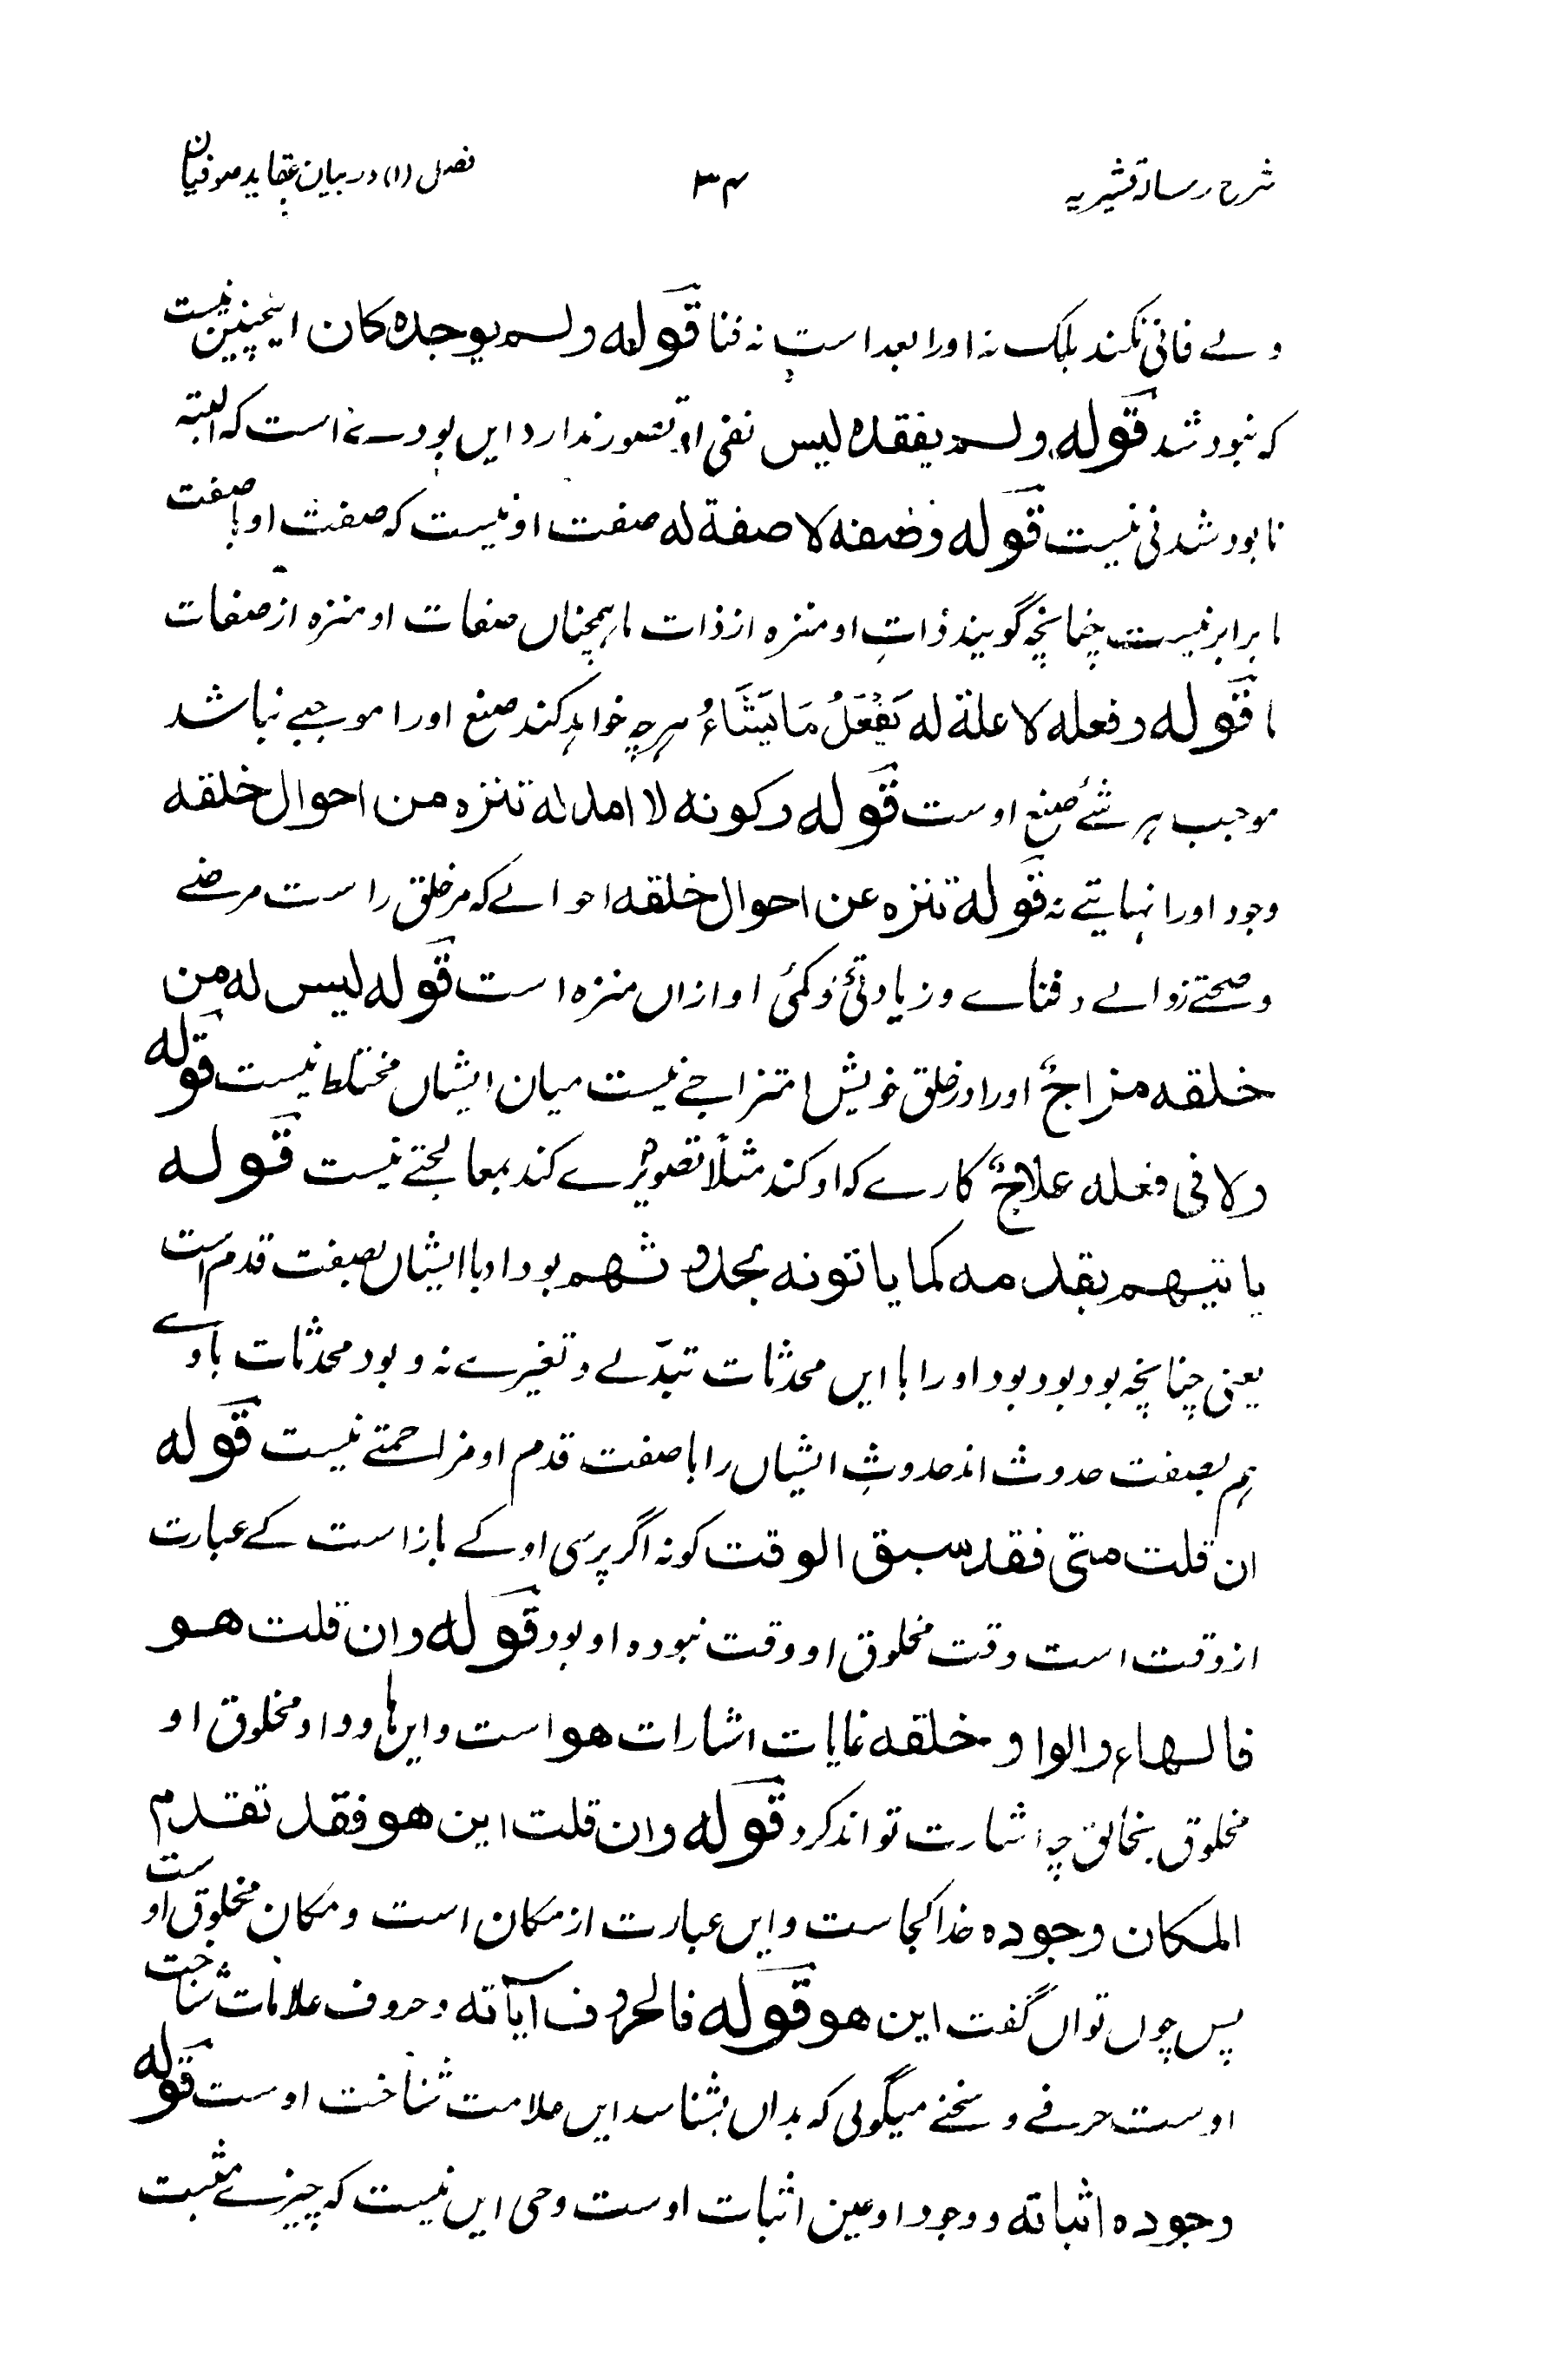 شرح رسالۂ قشیریہ ۳۴ فصل (۱) در بیان عقاید صوفیان
وے فانی نکند بلک نہ اورا بعد است نہ فنا قوله ولم یوجده کان اینچنین نیست
کہ نبود شد قوله ولم یفقده لیس نفی او تصور ندارد ایں بودے است کہ البتہ
نابود شدنی نیست قوله وصفه لا صفة له صفت او نیست کہ صفت او با صفت
ما برابر نیست چنانچہ گویند ذاتِ او منزہ از ذات ما ہمچناں صفات او منزہ از صفات
ما قوله وفعله لا علة له یَفْعَلُ مَا یَشَاءُ ہرچہ خواہد کند صنع اورا موجبے نباشد
موجب ہر شئے صنع اوست قوله وکونه لا امد له تنزه من احوال خلقه
وجود اورا نہایتے نہ قوله تنزه عن احوال خلقه احوالے کہ مر خلق راست مرضے
و صحتے زوالے و فناے و زیادتیٔ و کمیٔ او ازاں منزہ است قوله لیس له من
خلقه مزاجٌ اورا در خلق خویش امتزاجے نیست میان ایشاں مختلط نیست قوله
ولا فی فعله علاجٌ کارے کہ او کند مثلاً تصویرے کند بمعالجتے نیست قوله
یاتیهم بقدمه کما یاتونه بحدوثهم بود او با ایشاں بصفت قدم است
یعنی چنانچہ بود بود بود اورا با ایں محدثات تبدّلے و تغیرے نہ و بود محدثات باوے
ہم بصفت حدوث اند حدوثِ ایشاں را با صفت قدم او مزاحمتے نیست قوله
ان قلت متی فقد سبق الوقت کونه اگر پرسی او کے باز است کے عبارت
از وقت است وقت مخلوق او وقت نبودہ او بود قوله وان قلت هو
فالهاء والواو خلقه غایات اشارات هو است و ایں ہا و واو مخلوق او
مخلوق بخالق چہ اشارت تواند کرد قوله وان قلت این هو فقد تقدم
المکان وجوده خدا کجاست و ایں عبارت از مکان است و مکان مخلوق اوست
پس چوں تواں گفت این هو قوله فالحروف آیاته و حروف علامات شناخت
اوست حرفے و سخنے میگوئی کہ بداں بشناسد ایں علامت شناخت اوست قوله
وجوده اثباته و وجود او عین اثبات اوست وحی ایں نیست کہ چیزے مثبت